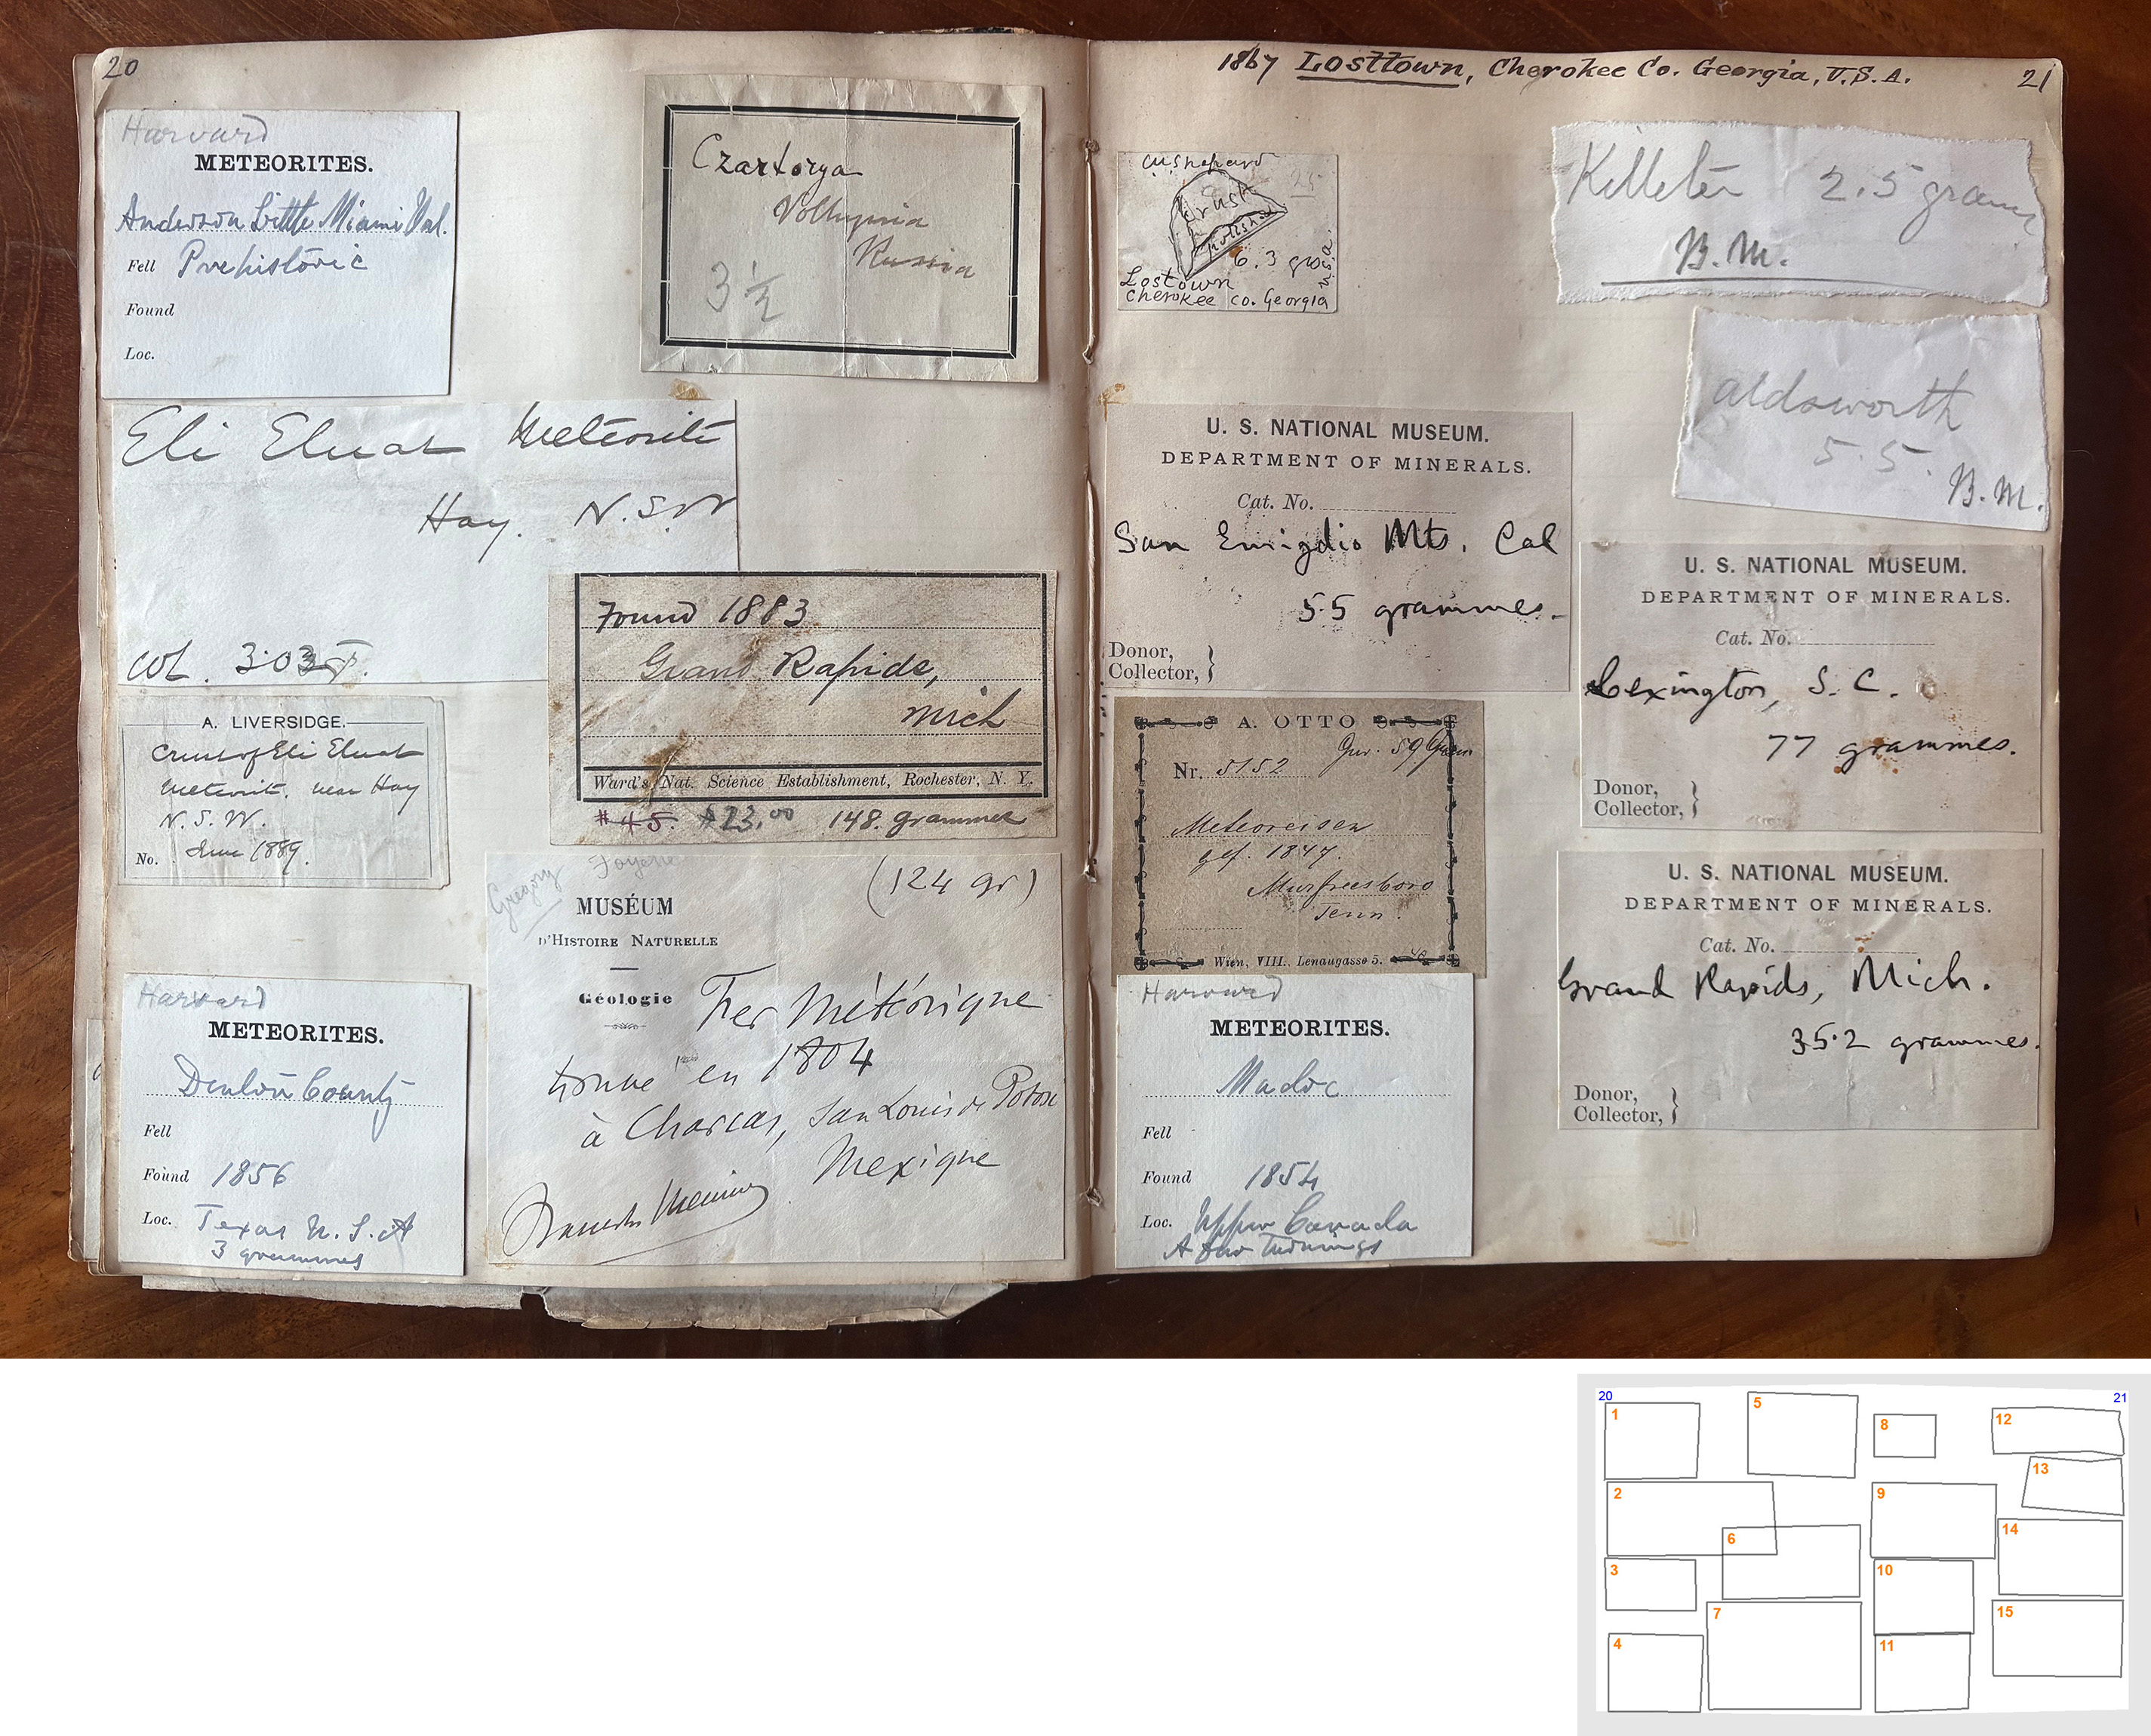 20
Harvard
METEORITES.
Anderson Little Miami Val.
Fell Prehistoric
Found
Loc.
Eli Elwah Meteorite
Hay. N.S.W
Wt. 3.03
A. LIVERSIDGE.
Crust of Eli Elwah
Meteorite, near Hay
N. S. W.
No. June 1889.
Harvard
METEORITES.
Denton County
Fell
Found 1856
Loc. Texas U.S.A
3 grammes
Czartorya
Volhynia
Russia
3 ½
Found 1883
Grand Rapids,
Mich
Ward's Nat. Science Establishment, Rochester, N. Y.
$45. $23.00 148. grammes
Gregory
(124 gr)
MUSÉUM
D'HISTOIRE NATURELLE
Géologie
Fer Météorique
trouvé en 1804
à Charcas, San Louis de Potosi
Mexique
1867 Losttown, Cherokee Co. Georgia, U.S.A.
21
C U Shepard
25
Crust
polished
6.3 grs
Lostown
Cherokee co. Georgia
U.S.A.
U. S. NATIONAL MUSEUM.
DEPARTMENT OF MINERALS.
Cat. No.
San Emigdio Mts. Cal
5.5 grammes.
Donor,
Collector,
A. OTTO
Nr. 5152 59
Meteoreisen
gef. 1847.
Murfreesboro
Tenn.
Wien, VIII., Lenaugasse 5.
Harvard
METEORITES.
Madoc
Fell
Found 1854
Loc. Upper Canada
A few Turnings
Killeter 2.5 grams
B.M.
Aldsworth
5.5.
B.M.
U. S. NATIONAL MUSEUM.
DEPARTMENT OF MINERALS.
Cat. No.
Lexington, S. C.
77 grammes.
Donor,
Collector,
U. S. NATIONAL MUSEUM.
DEPARTMENT OF MINERALS.
Cat. No.
Grand Rapids, Mich.
35.2 grammes.
Donor,
Collector,
20
21
1
2
3
4
5
6
7
8
9
10
11
12
13
14
15